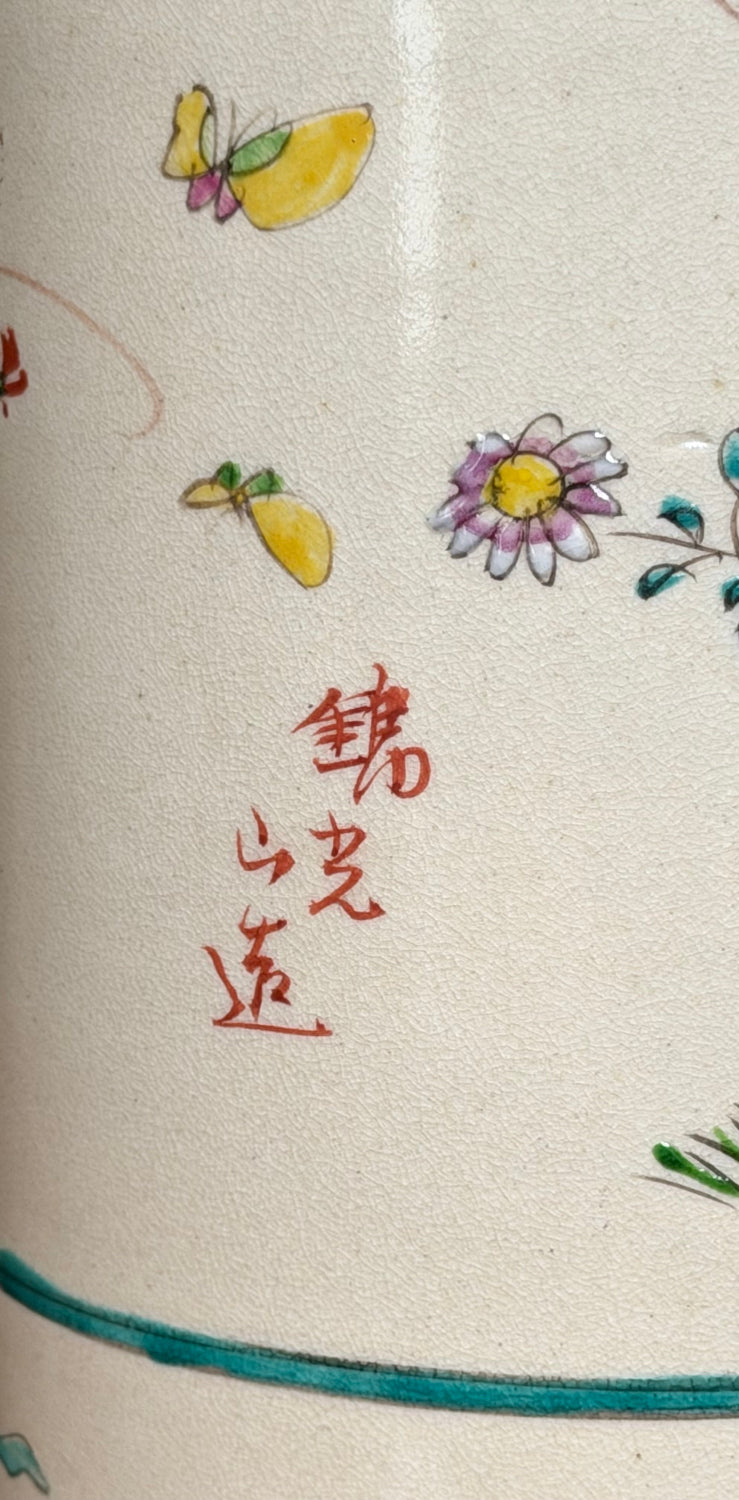 錦光
山造